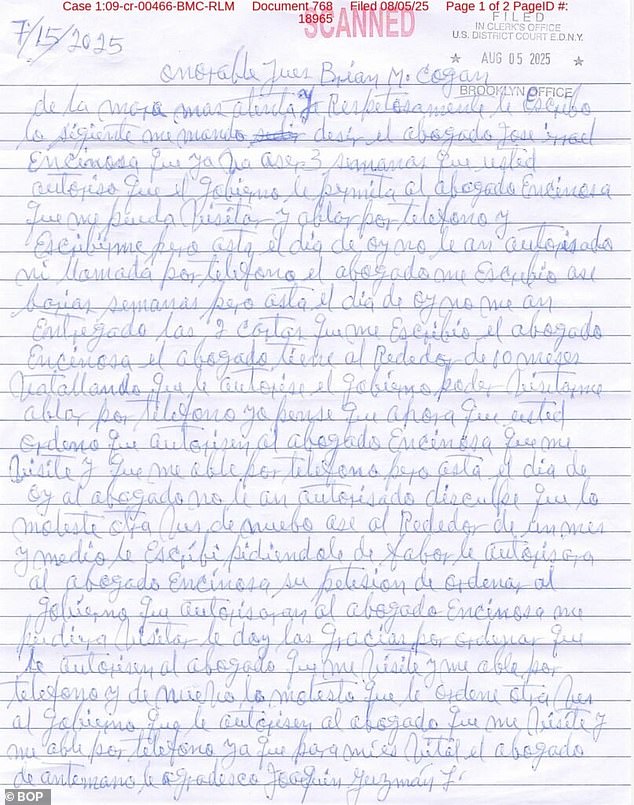 Case 1:09-cr-00466-BMC-RLM Document 768 Filed 08/05/25 Page 1 of 2 PageID #:
18965
SCANNED
FILED
IN CLERK'S OFFICE
U.S. DISTRICT COURT E.D.N.Y.
★ AUG 05 2025 ★
BROOKLYN OFFICE
7/15/2025
onorable Jues Brian M. Cogan
de la mas atenta y Respetosamente le Escribo
lo sigiente me mando desir el abogado Jose
Encinosa que ya va aser 3 semanas que usted
autoriso que el gobierno le permita al abogado Encinosa
que me pueda Visitar y ablar por telefono y
Escribirme pero asta el dia de oy no le an autorisado
ni llamada por telefono el abogado me Escribio ase
barias semanas pero asta el dia de oy no me an
Entregado las 2 cartas que me Escribio el abogado
Encinosa el abogado tiene al Rededor de 10 meses
Vatallando que le autorise el gobierno poder Visitarme
ablar por telefono yo pense que ahora que usted
ordeno que autorisen al abogado Encinosa que me
Visite y que me able por telefono pero asta el dia de
oy al abogado no le an autorisado disculpe que lo
moleste otra Ves de nuebo ase al Rededor de un mes
y medio le Escribi pidiendole de fabor le autorisara
al abogado Encinosa su petesion de ordenar al
gobierno que autorisaran al abogado Encinosa me
pudiera Visitar le doy las gracias por ordenar que
le autorisen al abogado que me Visite y me able por
telefono y de nuevo lo molesto que le ordene otra Ves
al gobierno que le autorisen al abogado que me Visite y
me able por telefono ya que para mi es Vital el abogado
de antemano le agradesco Joaquin Guzman L.
© BOP